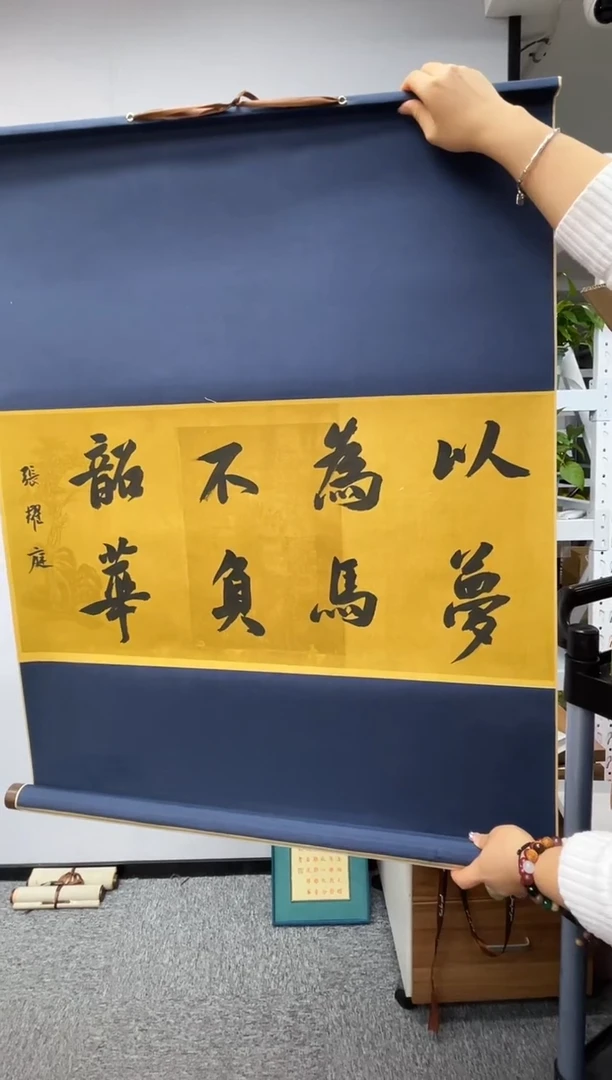 以夢
為馬
不負
韶華
張耀庭